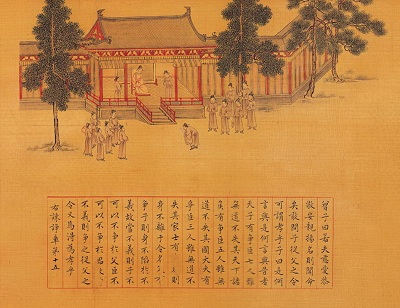 曾子曰若夫慈愛恭
敬安親揚名則聞命
矣敢問子從父之令
可謂孝乎子曰是何
言與是何言與昔者
天子有爭臣七人雖
無道不失其天下諸
侯有爭臣五人雖無
道不失其國大夫有
爭臣三人雖無道不
失其家士有則
身不離于令名父
爭子則身不陷於不
義故當不義則子不
可以不爭於父臣不
可以不爭於君
不義則爭之從父之
令又焉得為孝乎
右諫諍章第五